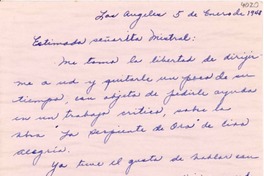 4020
Los Angeles 5 de Enero de 1948
Estimada señorita Mistral:
Me tomo la libertad de dirijir-
me a ud y quitarle un poco de su
tiempo, con objeto de pedirle ayuda
en un trabajo critico, sobre la
obra "La Serpiente de Oro" de Ciro
Alegria.
Ya tuve el gusto de hablar con